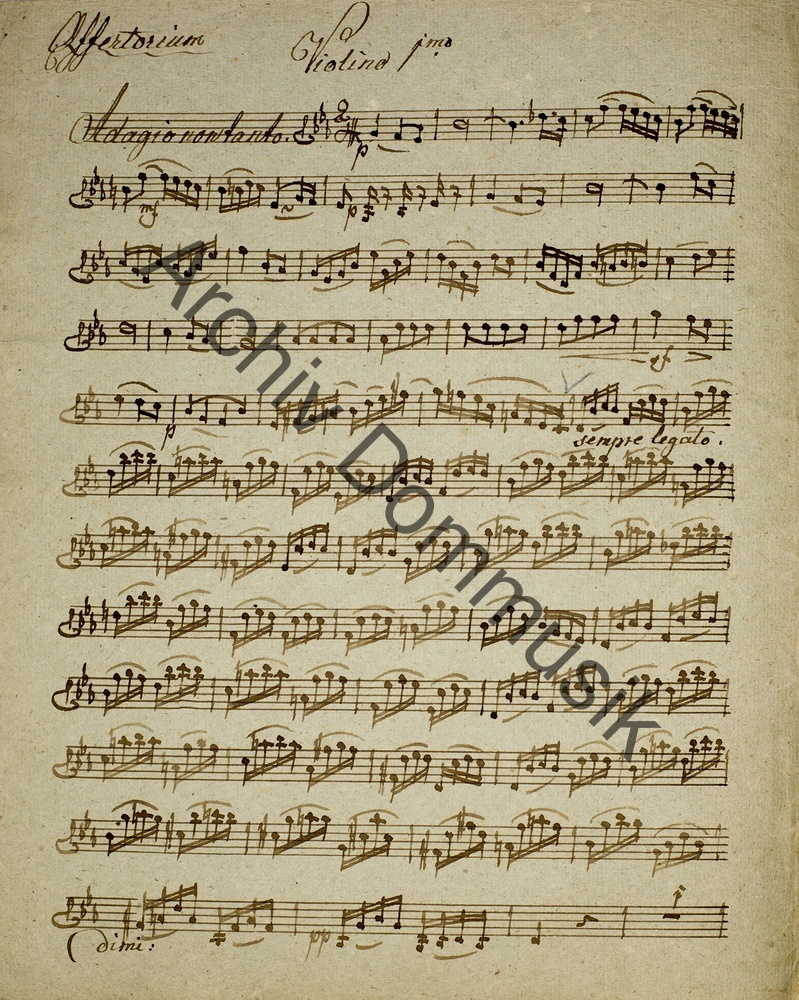 Offertorium Violino 1mo
Adagio non tanto. 2/4
p
mf p
mf
p
sempre legato.
dimi: pp 1
Archiv Dommusik